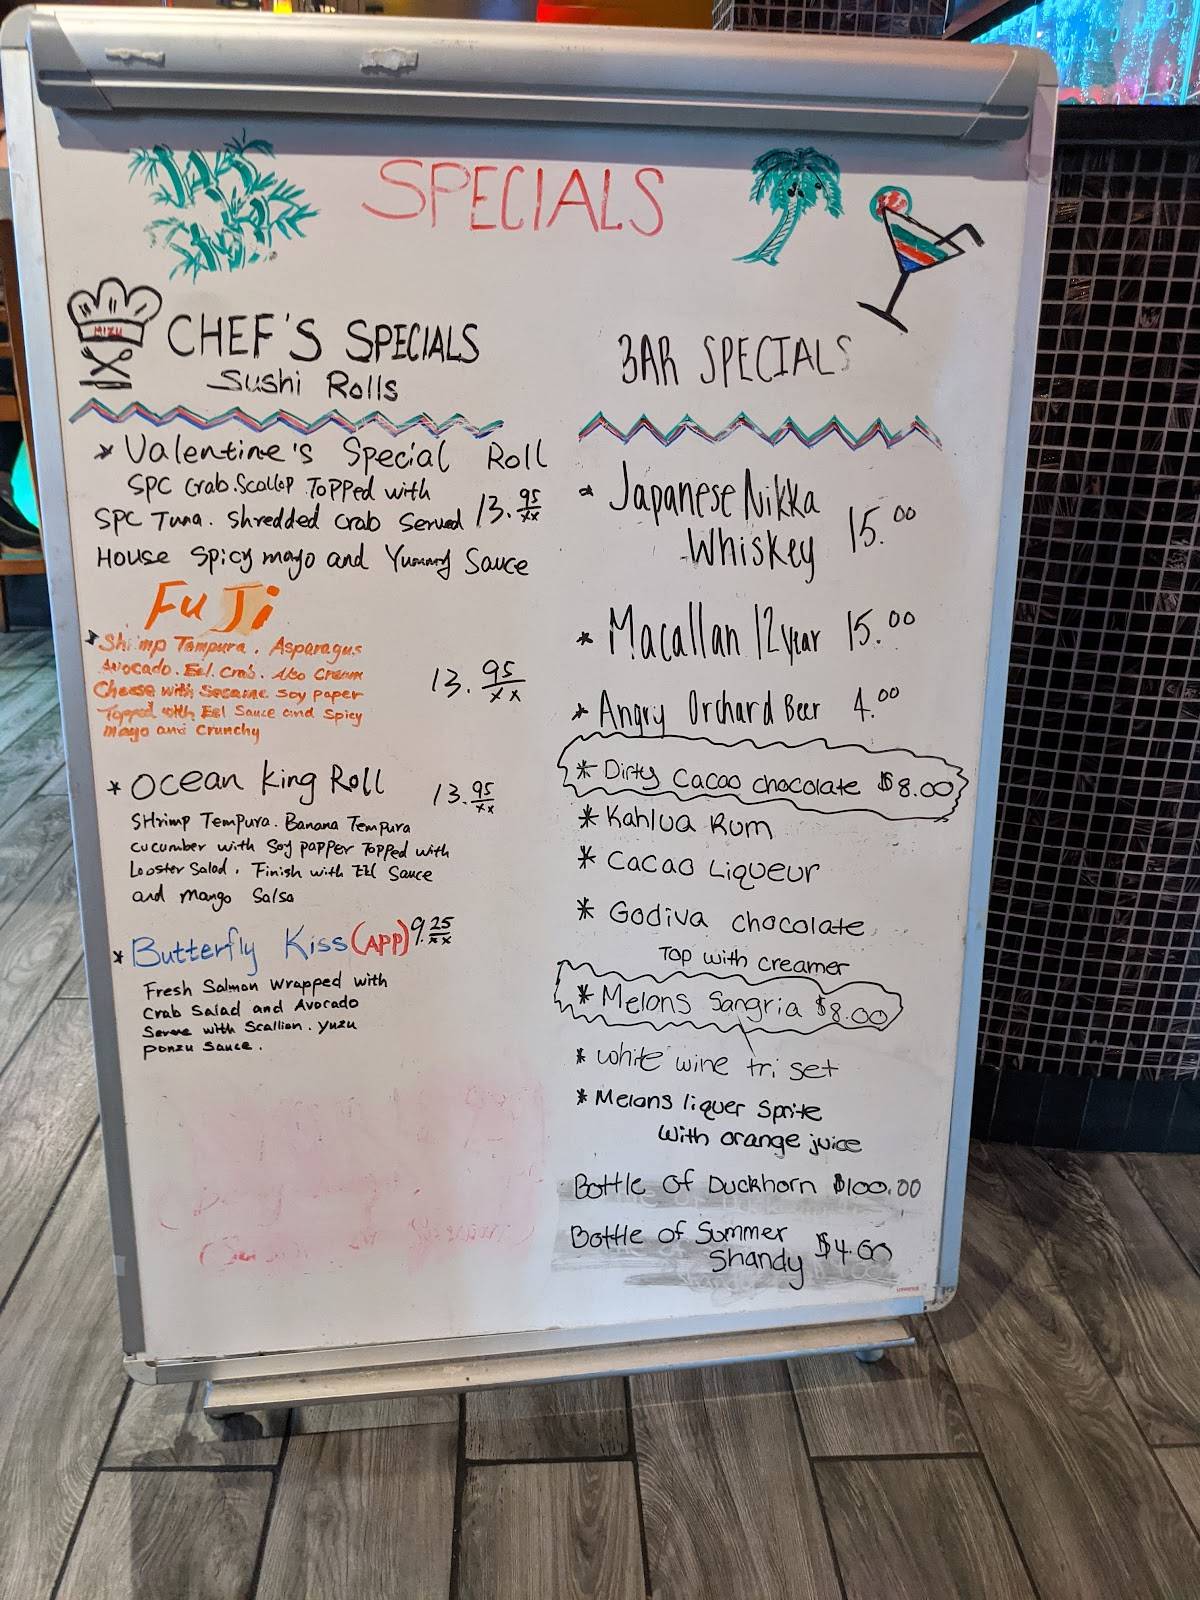 SPECIALS
MIZU
CHEF'S SPECIALS
Sushi Rolls
* Valentine's Special Roll
SPC Crab. Scallop Topped with
SPC Tuna. Shredded Crab Served 13.95
xx
House Spicy mayo and Yummy Sauce
FuJi
* Shrimp Tempura. Asparagus
Avocado. Eel. Crab. Also Cream
Cheese with Sesame Soy paper
13.95
xx
Topped with Eel Sauce and Spicy
Mayo and Crunchy
* Ocean King Roll 13.95
xx
SHrimp Tempura. Banana Tempura
cucumber with Soy papper Topped with
Looster Salad. Finish with EEl Sauce
and Mango Salsa
* Butterfly Kiss (APP) 9.25
xx
Fresh Salmon Wrapped with
Crab Salad and Avocado
Serve with Scallion. Yuzu
Ponzu Sauce.
BAR SPECIALS
* Japanese Nikka
Whiskey 15.00
* Macallan 12 year 15.00
* Angry Orchard Beer 4.00
* Dirty Cacao chocolate $8.00
* Kahlua Rum
* Cacao Liqueur
* Godiva chocolate
Top with creamer
* Melons Sangria $8.00
* White wine tri set
* Melons liquer Sprite
With orange juice
Bottle of Duckhorn $100.00
Bottle of Summer
Shandy $4.00